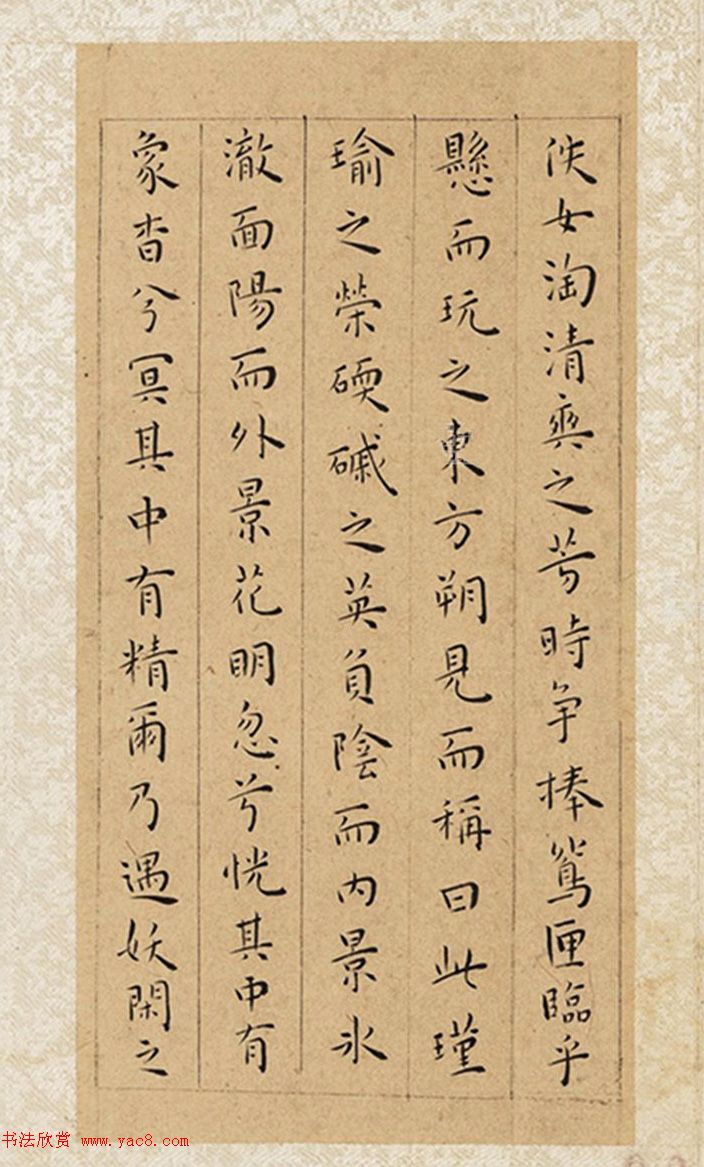 佚女淘清與之芳時争捧鴛匣臨乎
懸而玩之東方朔見而稱曰此瑾
瑜之榮碝磩之英負陰而内景氷
澈面陽而外景花明忽兮恍其中有
象杳兮冥其中有精爾乃遇妖閑之
书法欣赏 www.yac8.com